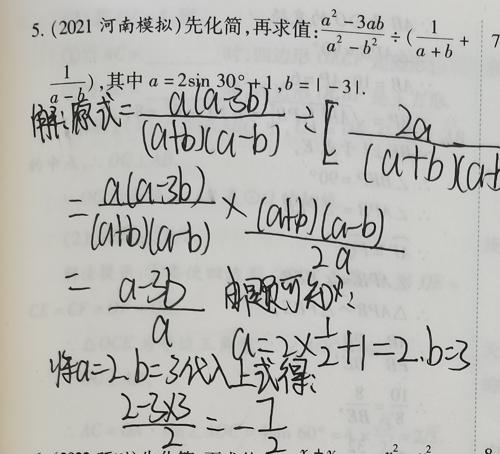 5. (2021 河南模拟) 先化简,再求值: (a²-3ab)/(a²-b²) ÷ (1/(a+b) +
1/(a-b)),其中 a=2sin 30°+1,b=|-3|.
解:原式= a(a-3b)/((a+b)(a-b)) ÷ [2a/((a+b)(a-b
= a(a-3b)/((a+b)(a-b)) × (a+b)(a-b)/2a
= (a-3b)/a 由题可知:
a=2×1/2+1=2.b=3
将a=2.b=3代入上式得:
(2-3×3)/2=-7/2